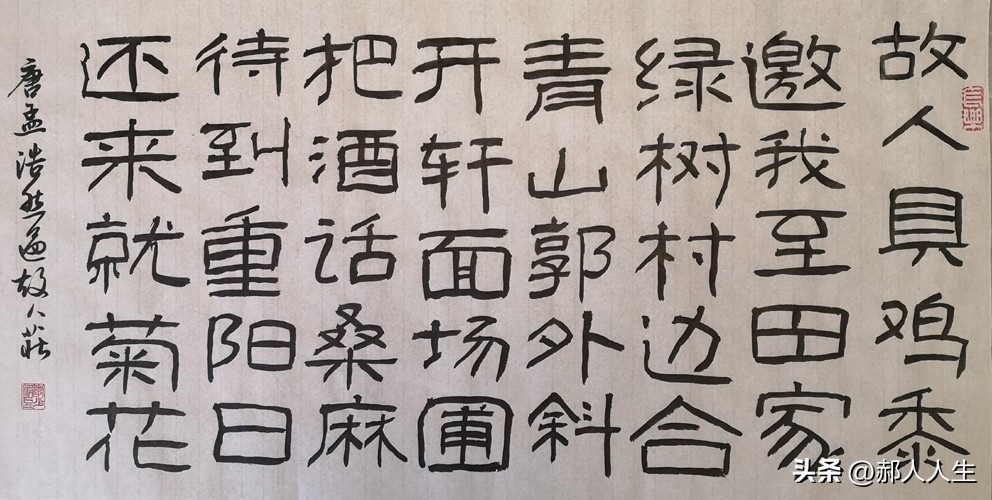 故人具鸡黍
邀我至田家
绿树村边合
青山郭外斜
开轩面场圃
把酒话桑麻
待到重阳日
还来就菊花
唐孟浩然過故人莊
头条 @郝人人生